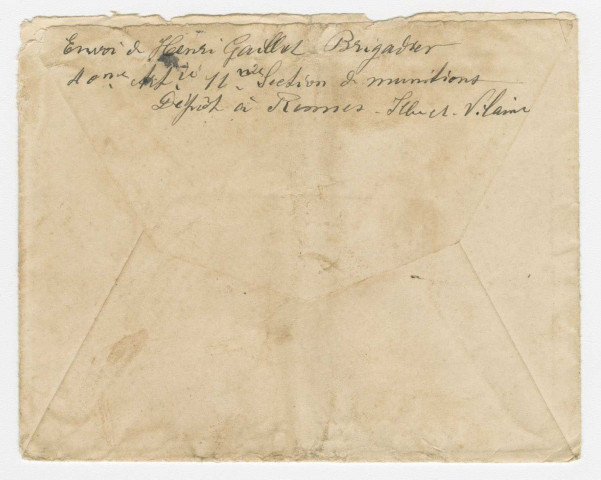 Envoi de Henri Gaillot Brigadier
10me Artrie 11me Section de munitions
Dépôt à Rennes - Ille et Vilaine